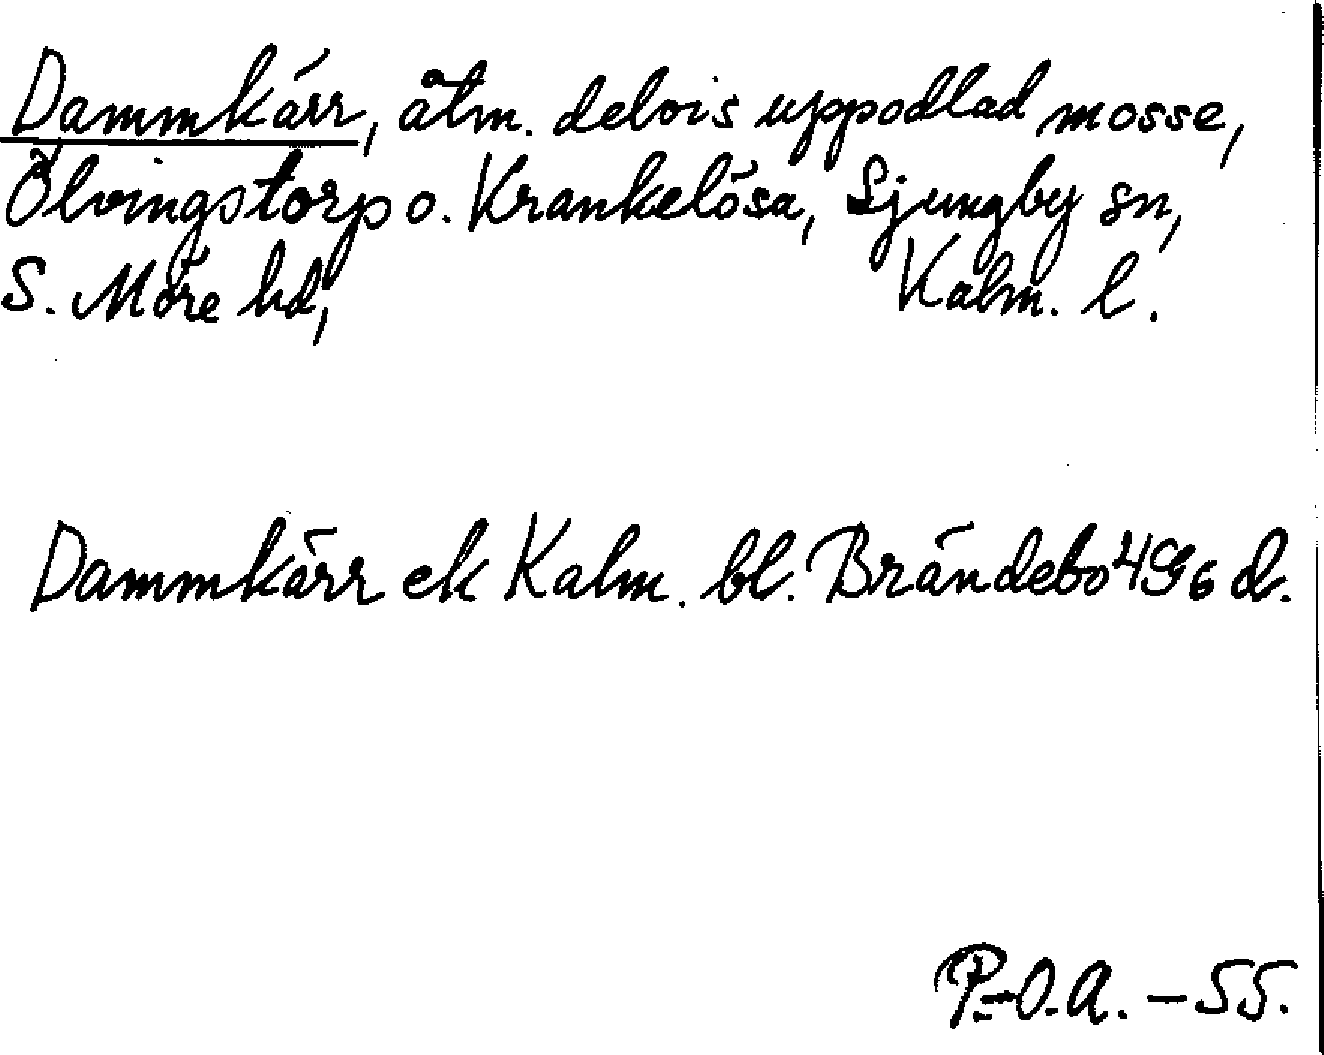 Dammkärr, åtm. delvis uppodlad mosse,
Ölvingstorp o. Krankelösa, Ljungby sn,
S. Möre hd, Kalm. l.
Dammkärr ek Kalm. bl. Brändebo 4G6 d.
P.-O.A. – 55.